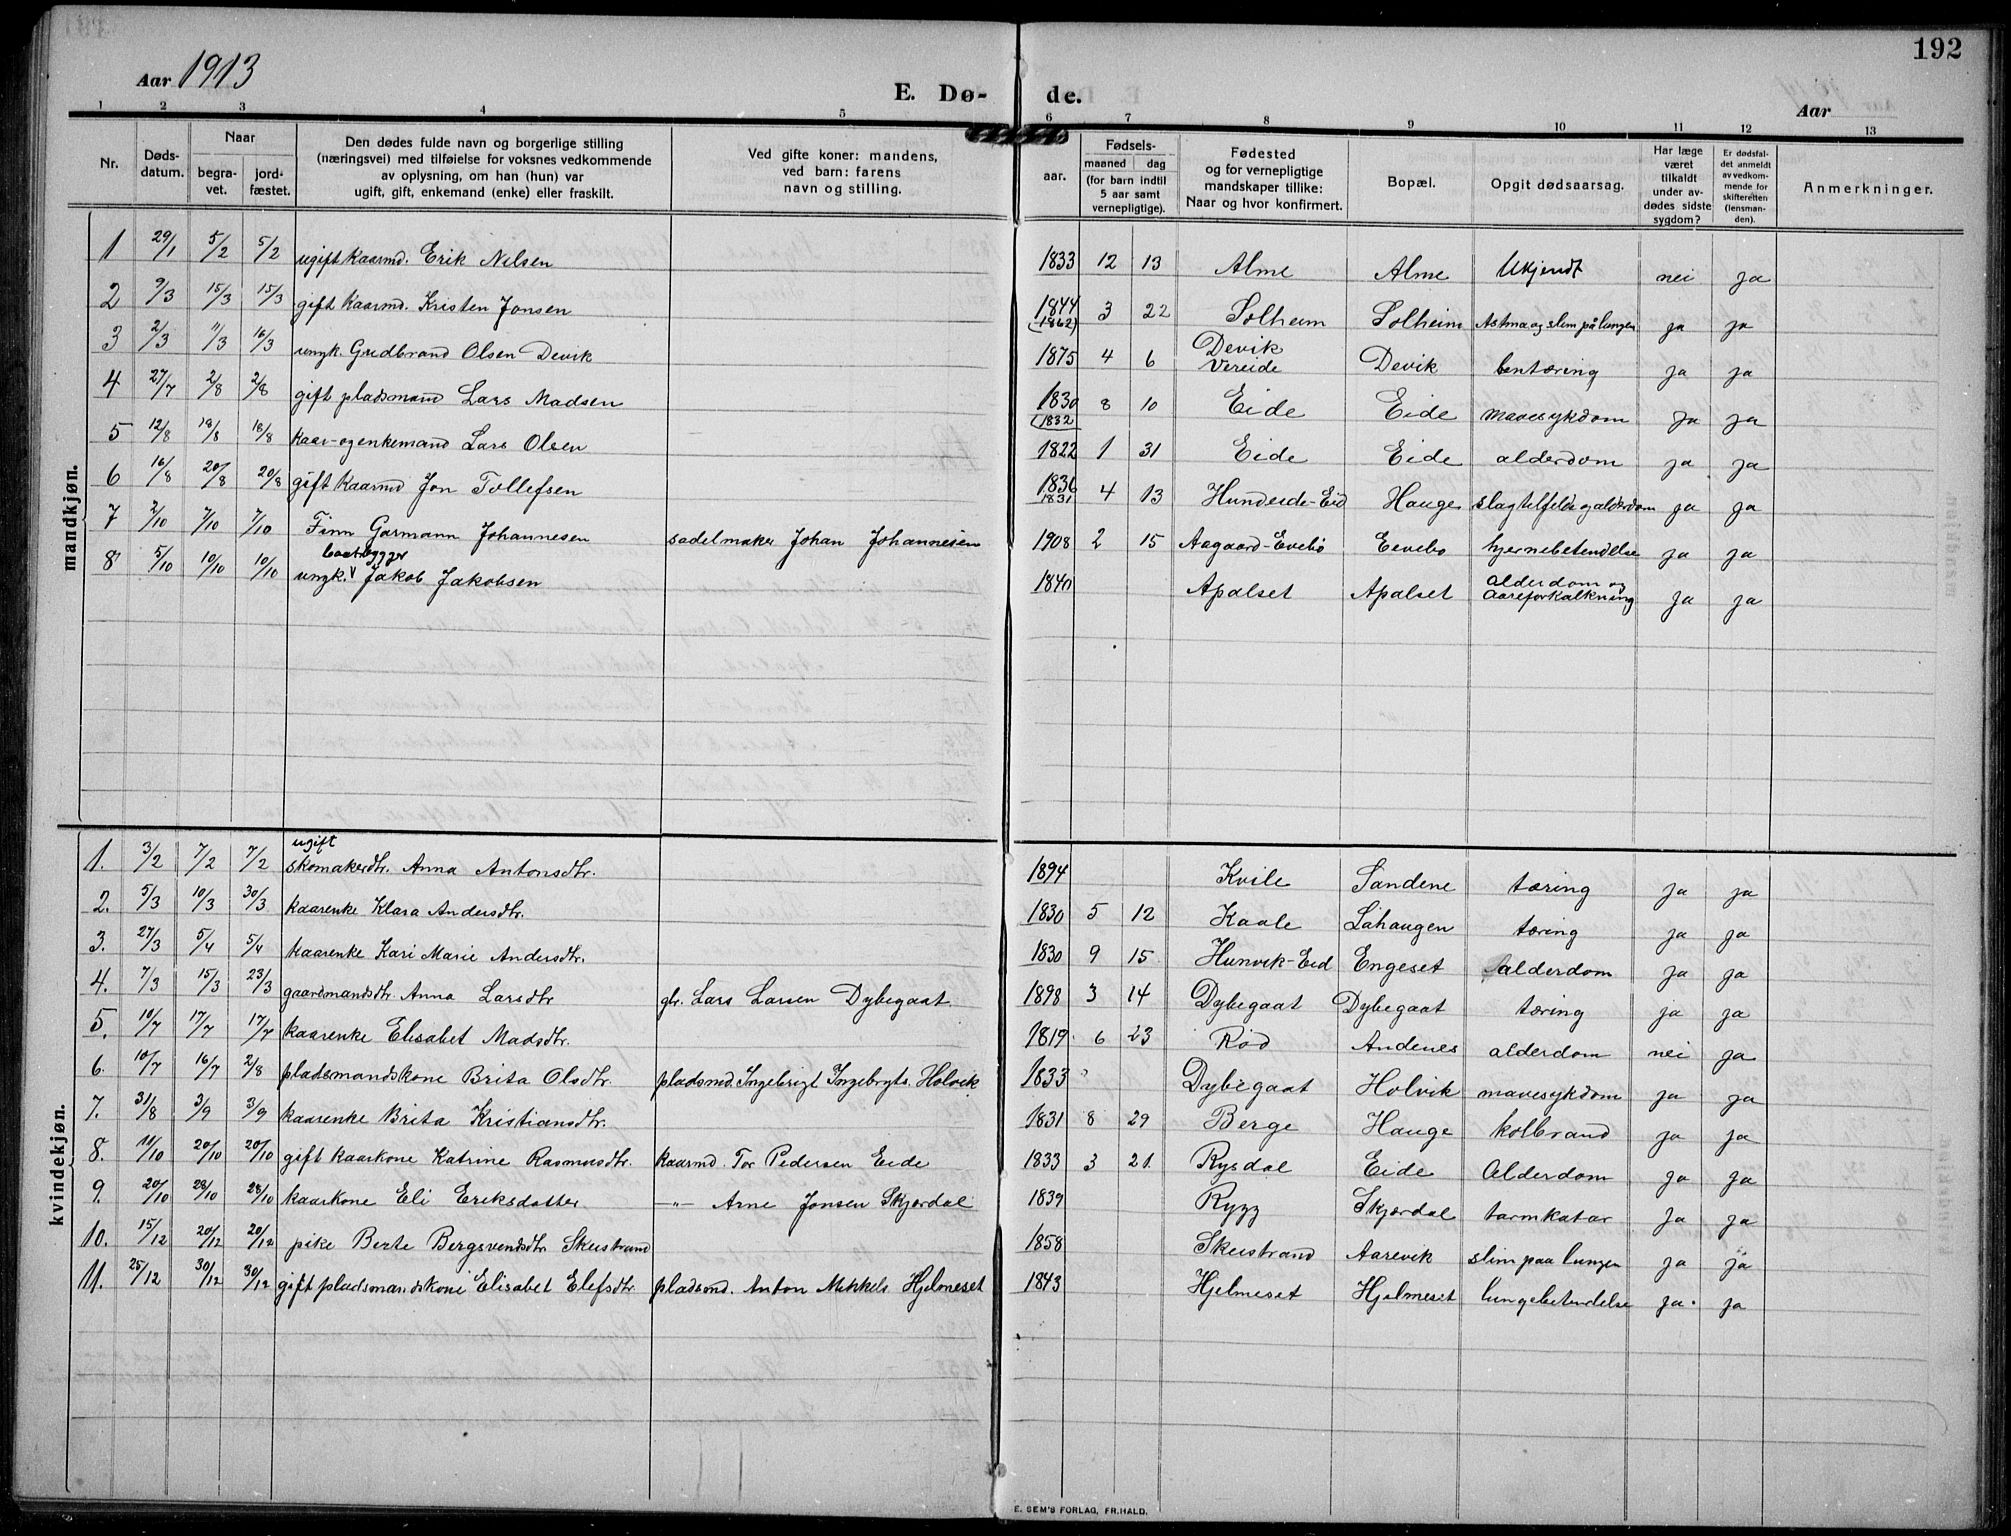 192
Aar 1913
E. Dø-
de.
Aar
1 2 3 4 5 6 7 8 9 10 11 12 13
Nr.
Døds-
datum.
Naar
begra-
vet.
jord-
fæstet.
Den dødes fulde navn og borgerlige stilling
(næringsvei) med tilføielse for voksnes vedkommende
av oplysning, om han (hun) var
ugift, gift, enkemand (enke) eller fraskilt.
Ved gifte koner: mandens,
ved barn: farens
navn og stilling.
Fødsels-
aar.
maaned dag
(for barn indtil
5 aar samt
vernepligtige).
Fødested
og for vernepligtige
mandskaper tillike:
Naar og hvor konfirmert.
Bopæl.
Opgit dødsaarsag.
Har læge
været
tilkaldt
under av-
dødes sidste
sygdom?
Er dødsfal-
det anmeldt
av vedkom-
mende for
skifteretten
(lensman-
den).
Anmerkninger.
mandkjøn.
1 29/1 5/2 5/2 ugift kaarmd. Erik Nilsen 1833 12 13 Alme Alme Ukjendt nei ja
2 9/3 15/3 15/3 gift kaarmd. Kristen Jonsen 1844 (1862) 3 22 Solheim Solheim Astma og slim på lungen ja ja
3 2/3 11/3 16/3 ungk. Gudbrand Olsen Devik 1875 4 6 Devik Vereide Devik bentæring ja ja
4 27/7 2/8 2/8 gift pladsmand Lars Madsen 1830 (1832 8 10 Eide Eide mavesykdom ja ja
5 12/8 18/8 18/8 kaar- og enkemand Lars Olsen 1822 1 31 Eide Eide alderdom ja ja
6 16/8 20/8 20/8 gift kaarmd Jon Tollefsen 1836 1831 4 13 Hundeide-Eid Hauge slagtilfelde og alderdom ja ja
7 2/10 7/10 7/10 Finn Garmann Johannesen sadelmaker Johan Johannesen 1908 2 15 Aagaard-Evebø Eevebø hjernebetendelse ja ja
baatbygger
8 5/10 10/10 10/10 ungk. Jakob Jakobsen 1840 Apalset Apalset alderdom og Aareforkalkning ja ja
kvindekjøn.
ugift
1. 3/2 7/2 7/2 skomakerdtr. Anna Antonsdtr. 1894 Kvile Sandene tæring ja ja
2. 5/3 10/3 30/3 kaarenke Klara Andersdtr. 1830 5 12 Kaale Lahaugen tæring ja ja
3. 27/3 5/4 5/4 kaarenke Kari Marie Andersdtr. 1830 9 15 Hunvik-Eid Engeset alderdom ja ja
4. 7/3 15/3 23/3 gaardmandsdtr. Anna Larsdtr gbr. Lars Larsen Dybegaat. 1898 3 14 Dybegaat Dybegaat tæring ja ja
5. 10/7 17/7 17/7 kaarenke Elisabet Madsdtr. 1819 6 23 Rød Andenes alderdom nei ja
6. 10/7 16/7 2/8 pladsmandskone Brita Olsdtr. pladsmd. Ingebrigt Ingebrygts. Holvik 1833 Dybegaat Holvik mavesykdom ja ja
7. 31/8 3/9 3/9 kaarenke Brita Kristiansdtr. 1831 8 29 Berge Hauge kolbrand ja ja
8. 11/10 20/10 20/10 gift kaarkone Katrine Rasmusdtr. kaarmd. Tor Pedersen Eide 1833 3 21. Rysdal Eide Alderdom ja ja
9. 20/10 28/10 28/10 kaarkone Eli Eriksdatter —"— Arne Jonsen Skjerdal 1839 Rygg Skjerdal tarmkatar ja ja
10. 15/12 20/12 20/12 pike Berte Bergsvendsdtr. Skeistrand 1858 Skeistrand Aarevik slim paa lungen ja ja
11. 25/12 30/12 30/12 gift pladsmandskone Elisabet Elefsdtr pladsmd. Anton Mikkels. Hjelmeset 1843 Hjelmeset Hjelmeset lungebetendelse ja. ja
E. SEM'S FORLAG, FR.HALD.